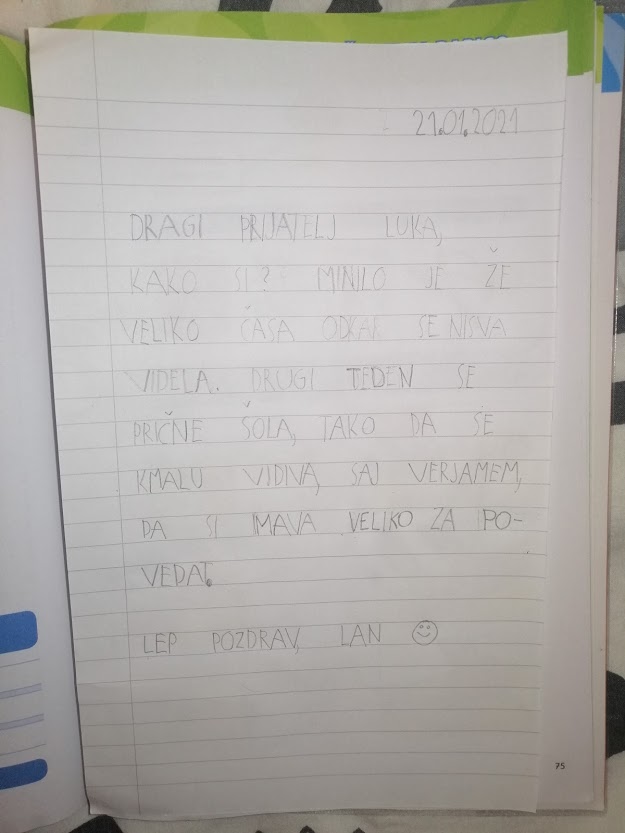 21.01.2021
DRAGI PRIJATELJ LUKA,
KAKO SI? MINILO JE ŽE
VELIKO ČASA ODKAR SE NISVA
VIDELA. DRUGI TEDEN SE
PRIČNE ŠOLA, TAKO DA SE
KMALU VIDIVA, SAJ VERJAMEM,
DA SI IMAVA VELIKO ZA PO-
VEDAT.
LEP POZDRAV, LAN ☺
75